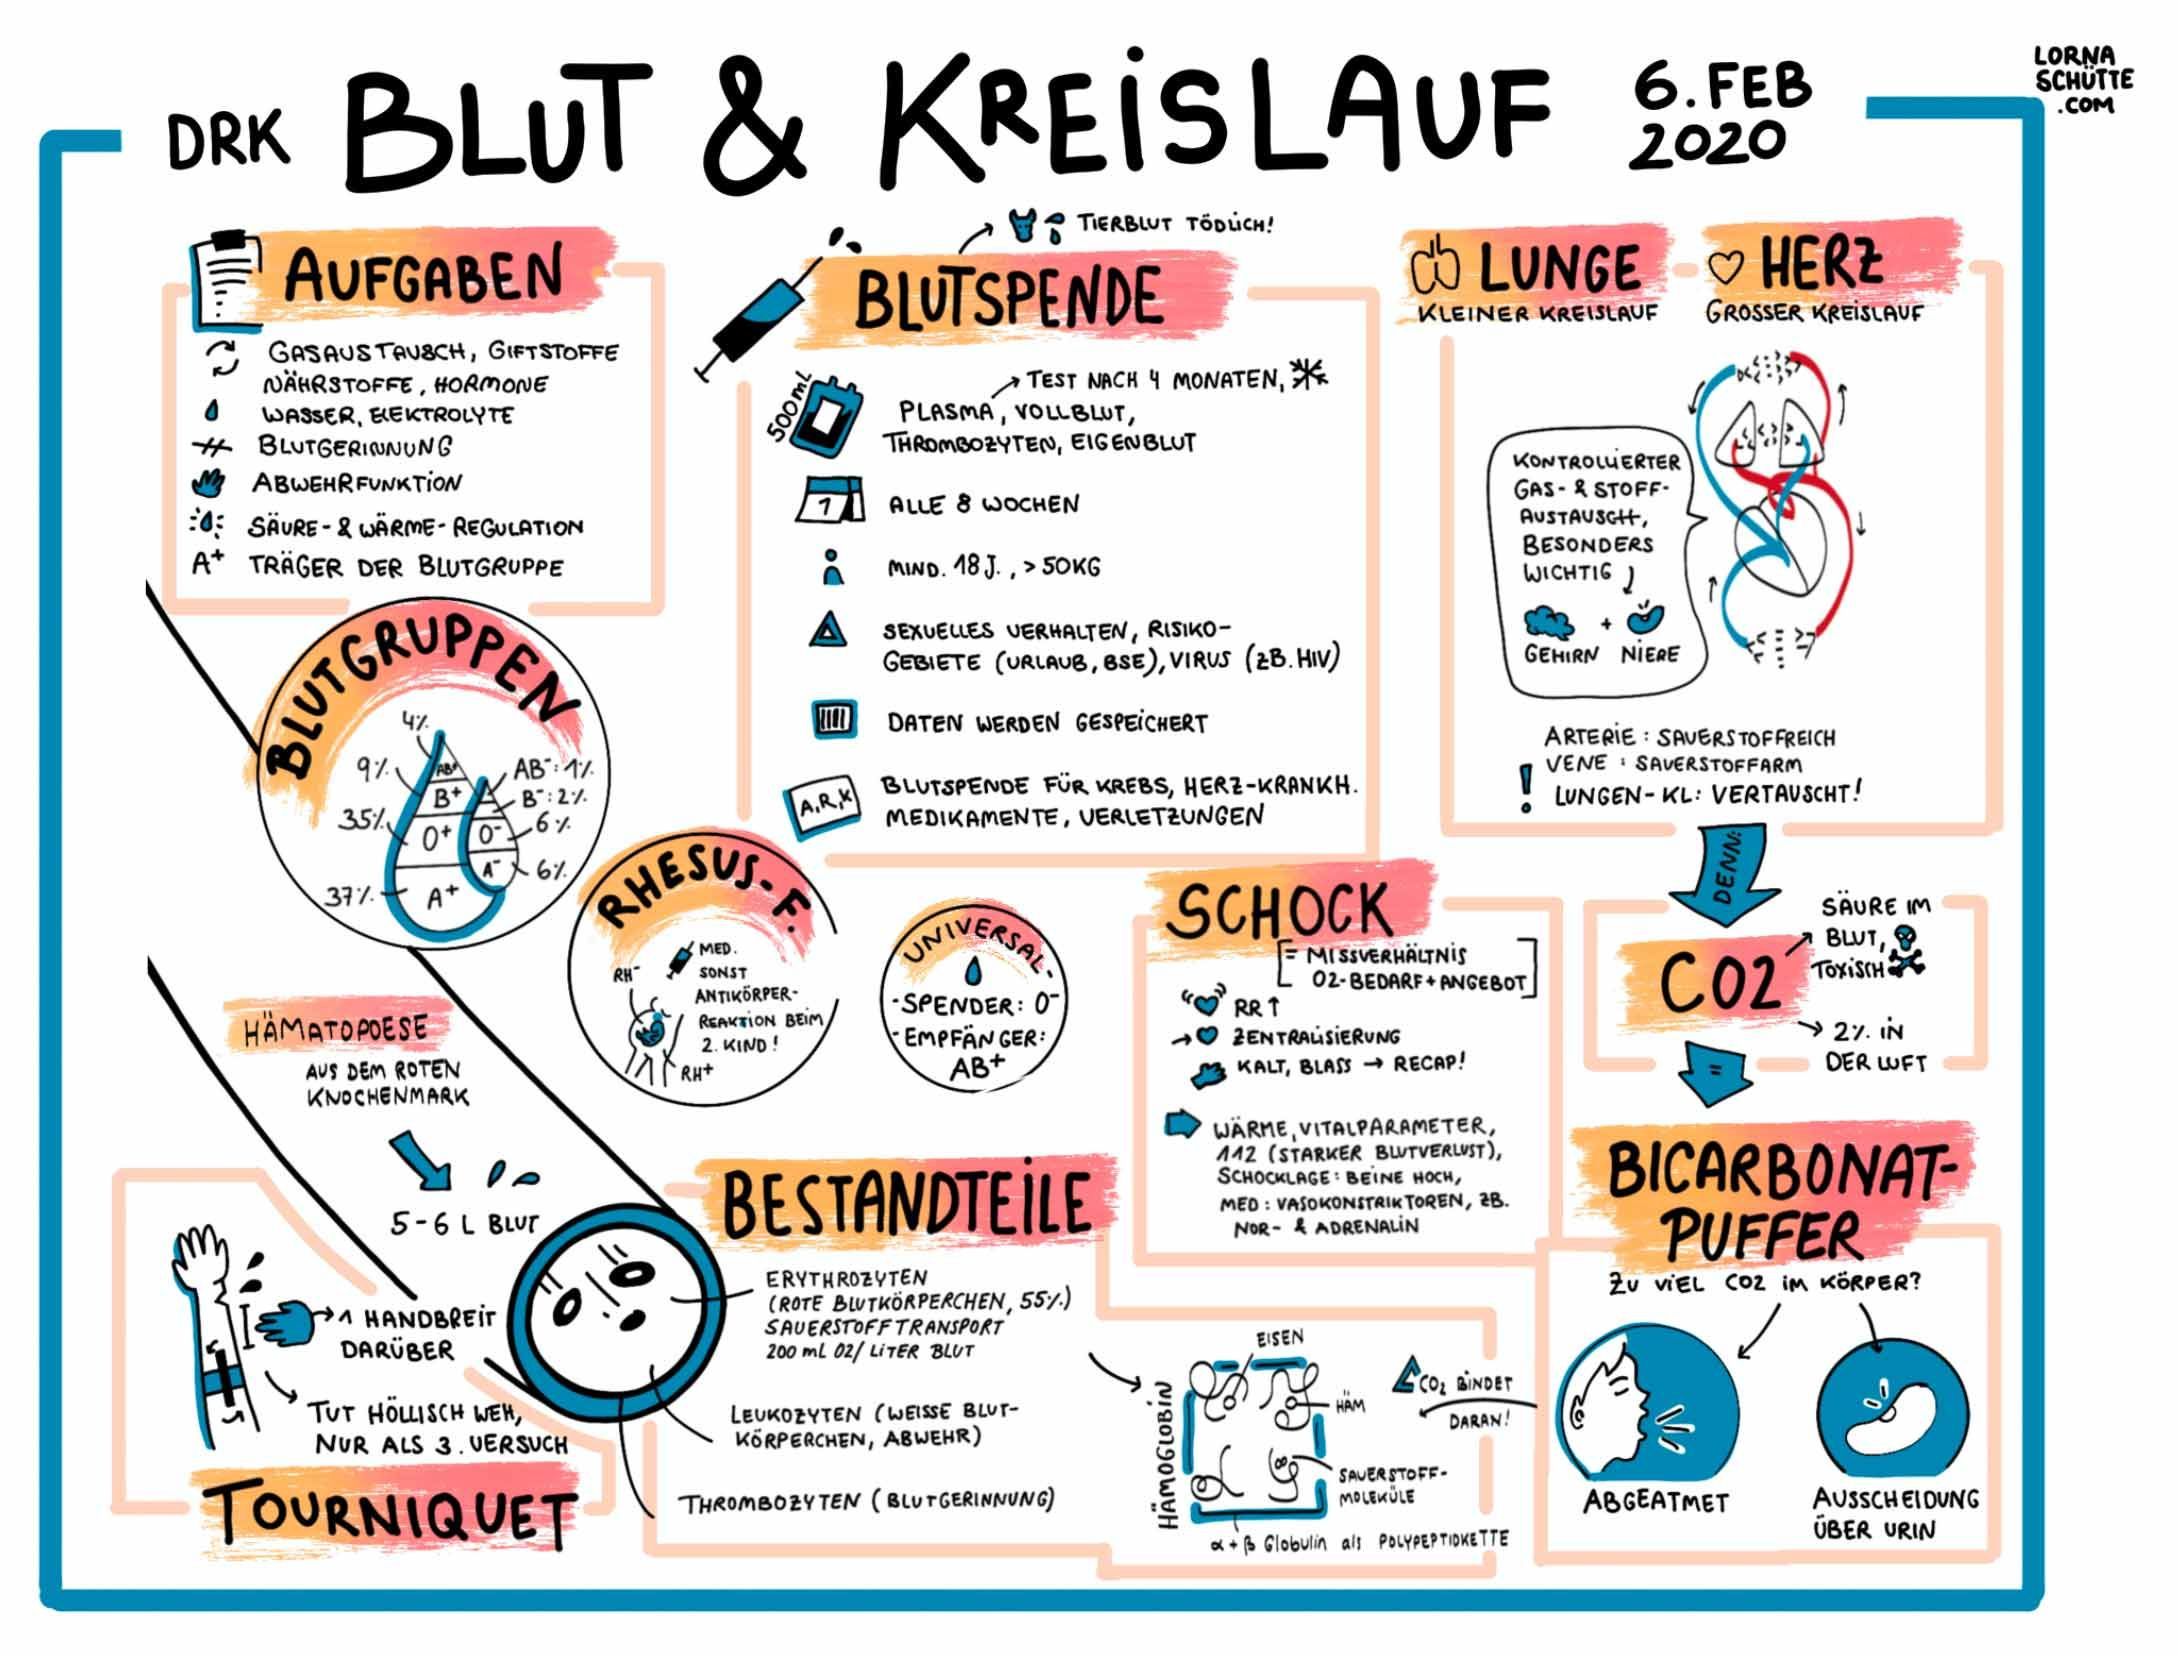 DRK BLUT & KREISLAUF
6. FEB
2020
LORNA
SCHÜTTE
.COM
AUFGABEN
GASAUSTAUSCH, GIFTSTOFFE
NÄHRSTOFFE, HORMONE
WASSER, ELEKTROLYTE
BLUTGERINNUNG
ABWEHRFUNKTION
SÄURE- & WÄRME-REGULATION
A+ TRÄGER DER BLUTGRUPPE
BLUTGRUPPEN
4%
9%
35%
37%
AB+
B+
O+
A+
O-
A-
AB-: 1%
B-: 2%
6%
6%
TIERBLUT TÖDLICH!
BLUTSPENDE
500mL
TEST NACH 4 MONATEN,
PLASMA, VOLLBLUT,
THROMBOZYTEN, EIGENBLUT
1
ALLE 8 WOCHEN
MIND. 18 J., > 50KG
SEXUELLES VERHALTEN, RISIKO-
GEBIETE (URLAUB, BSE), VIRUS (ZB. HIV)
DATEN WERDEN GESPEICHERT
A,R,K
BLUTSPENDE FÜR KREBS, HERZ-KRANKH.
MEDIKAMENTE, VERLETZUNGEN
LUNGE
KLEINER KREISLAUF
HERZ
GROSSER KREISLAUF
KONTROLLIERTER
GAS- & STOFF-
AUSTAUSCH,
BESONDERS
WICHTIG
+
GEHIRN NIERE
ARTERIE: SAUERSTOFFREICH
VENE: SAUERSTOFFARM
! LUNGEN-KL: VERTAUSCHT!
DENN:
CO2
SÄURE IM
BLUT,
TOXISCH
2% IN
DER LUFT
=
RHESUS-F.
RH-
MED.
SONST
ANTIKÖRPER-
REAKTION BEIM
2. KIND!
RH+
UNIVERSAL-
-SPENDER: O-
-EMPFÄNGER:
AB+
SCHOCK
= MISSVERHÄLTNIS
O2-BEDARF+ANGEBOT
RR↑
→ ZENTRALISIERUNG
KALT, BLASS → RECAP!
WÄRME, VITALPARAMETER,
112 (STARKER BLUTVERLUST),
SCHOCKLAGE: BEINE HOCH,
MED: VASOKONSTRIKTOREN, ZB.
NOR- & ADRENALIN
HÄMATOPOESE
AUS DEM ROTEN
KNOCHENMARK
5-6 L BLUT
1 HANDBREIT
DARÜBER
TUT HÖLLISCH WEH,
NUR ALS 3. VERSUCH
TOURNIQUET
BESTANDTEILE
ERYTHROZYTEN
(ROTE BLUTKÖRPERCHEN, 55%)
SAUERSTOFFTRANSPORT
200 mL O2/ LITER BLUT
LEUKOZYTEN (WEISSE BLUT-
KÖRPERCHEN, ABWEHR)
THROMBOZYTEN (BLUTGERINNUNG)
HÄMOGLOBIN
EISEN
HÄM
SAUERSTOFF-
MOLEKÜLE
α + β Globulin als POLYPEPTIDKETTE
CO2 BINDET
DARAN!
BICARBONAT-
PUFFER
ZU VIEL CO2 IM KÖRPER?
ABGEATMET
AUSSCHEIDUNG
ÜBER URIN